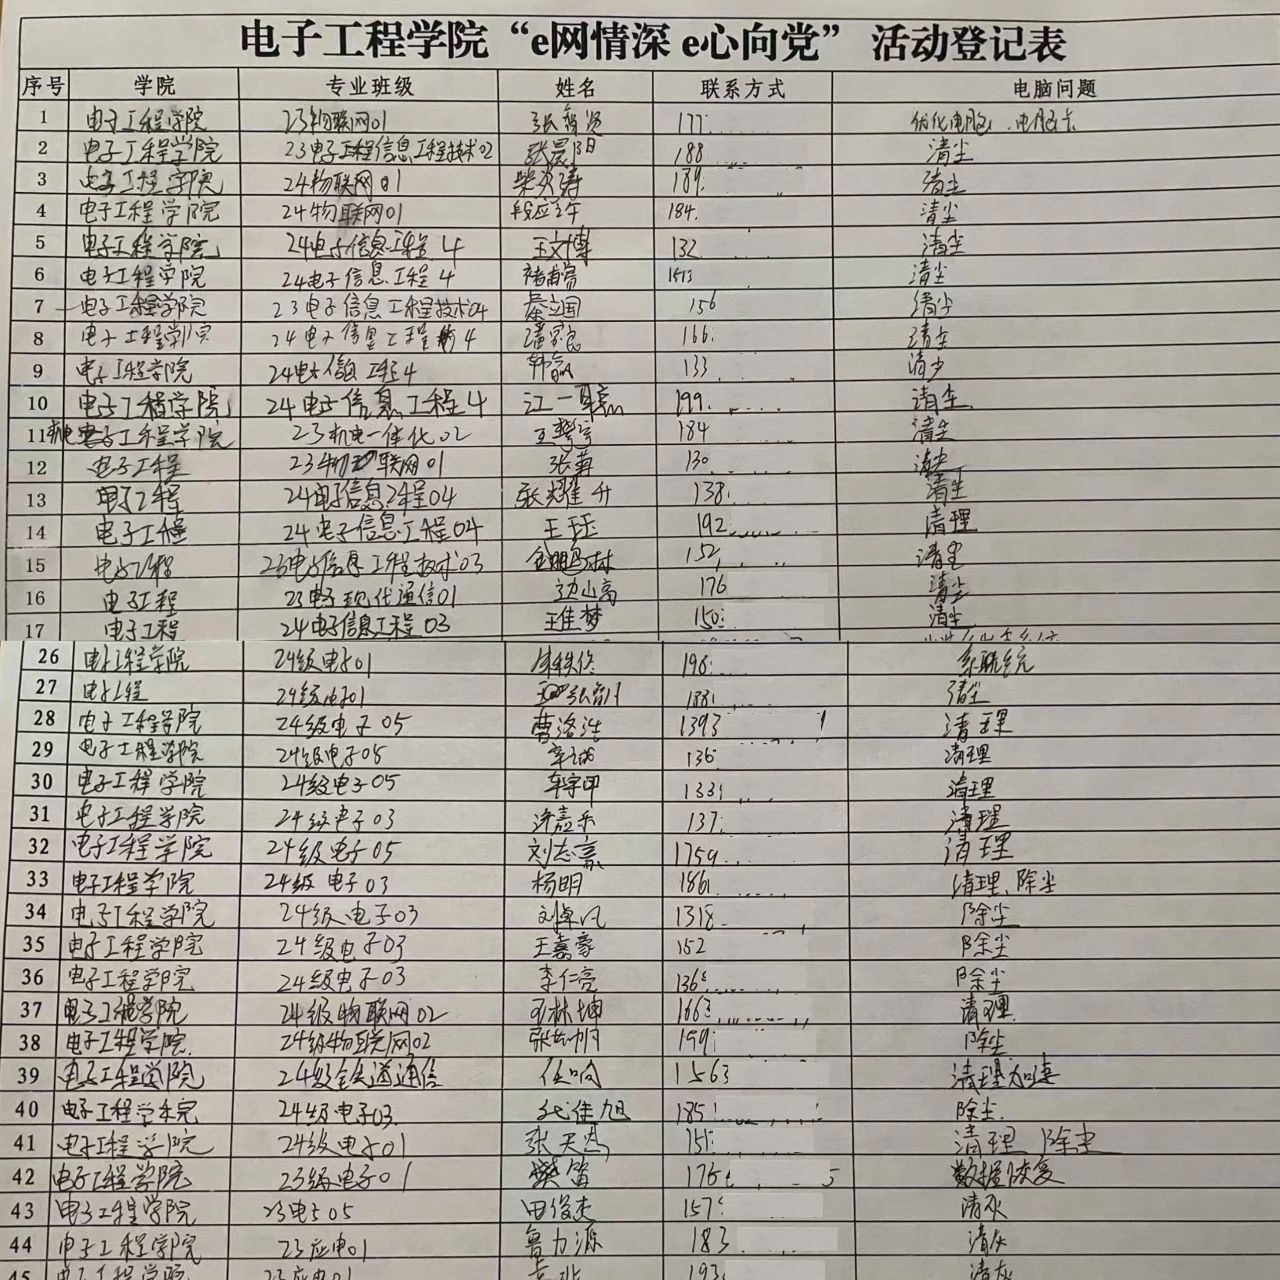 电子工程学院“e网情深 e心向党” 活动登记表
序号 学院 专业班级 姓名 联系方式 电脑问题
1 电子工程学院 23物联网01 177 优化电脑、电脑卡
2 电子工程学院 23电子工程信息工程技术02 张晨阳 188 清尘
3 电子工程学院 24物联网01 189 清尘
4 电子工程学院 24物联网01 184 清尘
5 电子工程学院 24电子信息工程4 王文博 132 清尘
6 电子工程学院 24电子信息工程4 1513 清尘
7 电子工程学院 23电子信息工程技术04 秦立国 156 清尘
8 电子工程学院 24电子信息工程4 潘家良 166 清尘
9 电子工程学院 24电子信息工程4 133 清尘
10 电子工程学院 24电子信息工程4 江一 199 清尘
11 电子工程学院 23机电一体化02 184 清尘
12 电子工程 23物联网01 130 清尘
13 电子工程 24电子信息工程04 张耀升 138 清尘
14 电子工程 24电子信息工程04 王珏 192 清理
15 电子工程 23电子信息工程技术03 152 清理
16 电子工程 23电子现代通信01 边山高 176 清尘
17 电子工程 24电子信息工程03 王佳梦 150 清尘
26 电子工程学院 24级电子01 198 系统
27 电子工程 24级电子01 188 清尘
28 电子工程学院 24级电子05 曹洛浩 1393 清理
29 电子工程学院 24级电子05 136 清理
30 电子工程学院 24级电子05 133 清理
31 电子工程学院 24级电子03 许嘉乐 137 清理
32 电子工程学院 24级电子05 刘志豪 1759 清理
33 电子工程学院 24级电子03 杨明 186 清理、除尘
34 电子工程学院 24级电子03 1318 除尘
35 电子工程学院 24级电子03 王嘉豪 152 除尘
36 电子工程学院 24级电子03 李仁亮 136 除尘
37 电子工程学院 24级物联网02 林坤 1663 清理
38 电子工程学院 24级物联网02 199 除尘
39 电子工程学院 24级铁道通信 任响 1563 清理加速
40 电子工程学院 24级电子03 佳旭 185 除尘
41 电子工程学院 24级电子01 张天 151 清理 除尘
42 电子工程学院 23级电子01 樊 176 5 数据恢复
43 电子工程学院 23电子05 田俊杰 157 清灰
44 电子工程学院 23应电01 鲁力源 183 清灰
45 电子工程学院 23应电01 193 清灰